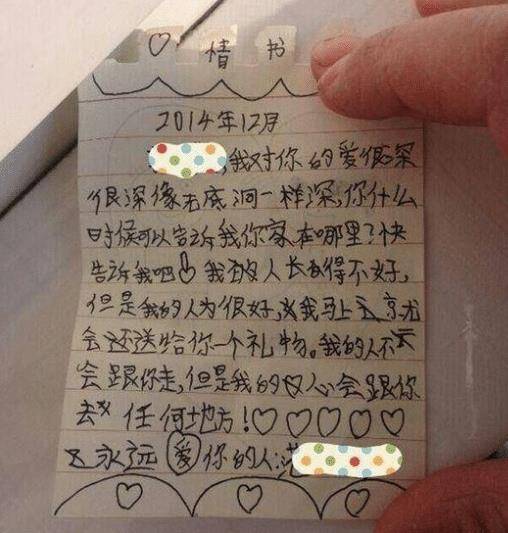 ♡ 情 书
2014年12月
,我对你的爱很深
很深像无底洞一样深,你什么
时候可以告诉我你家在哪里?快
告诉我吧 我 人长 得不好,
但是我的人为很好, 我马上
会还送给你一个礼物。我的人不
会跟你走,但是我的 心会跟你
去 任何地方!♡♡♡♡♡
永远爱你的人: